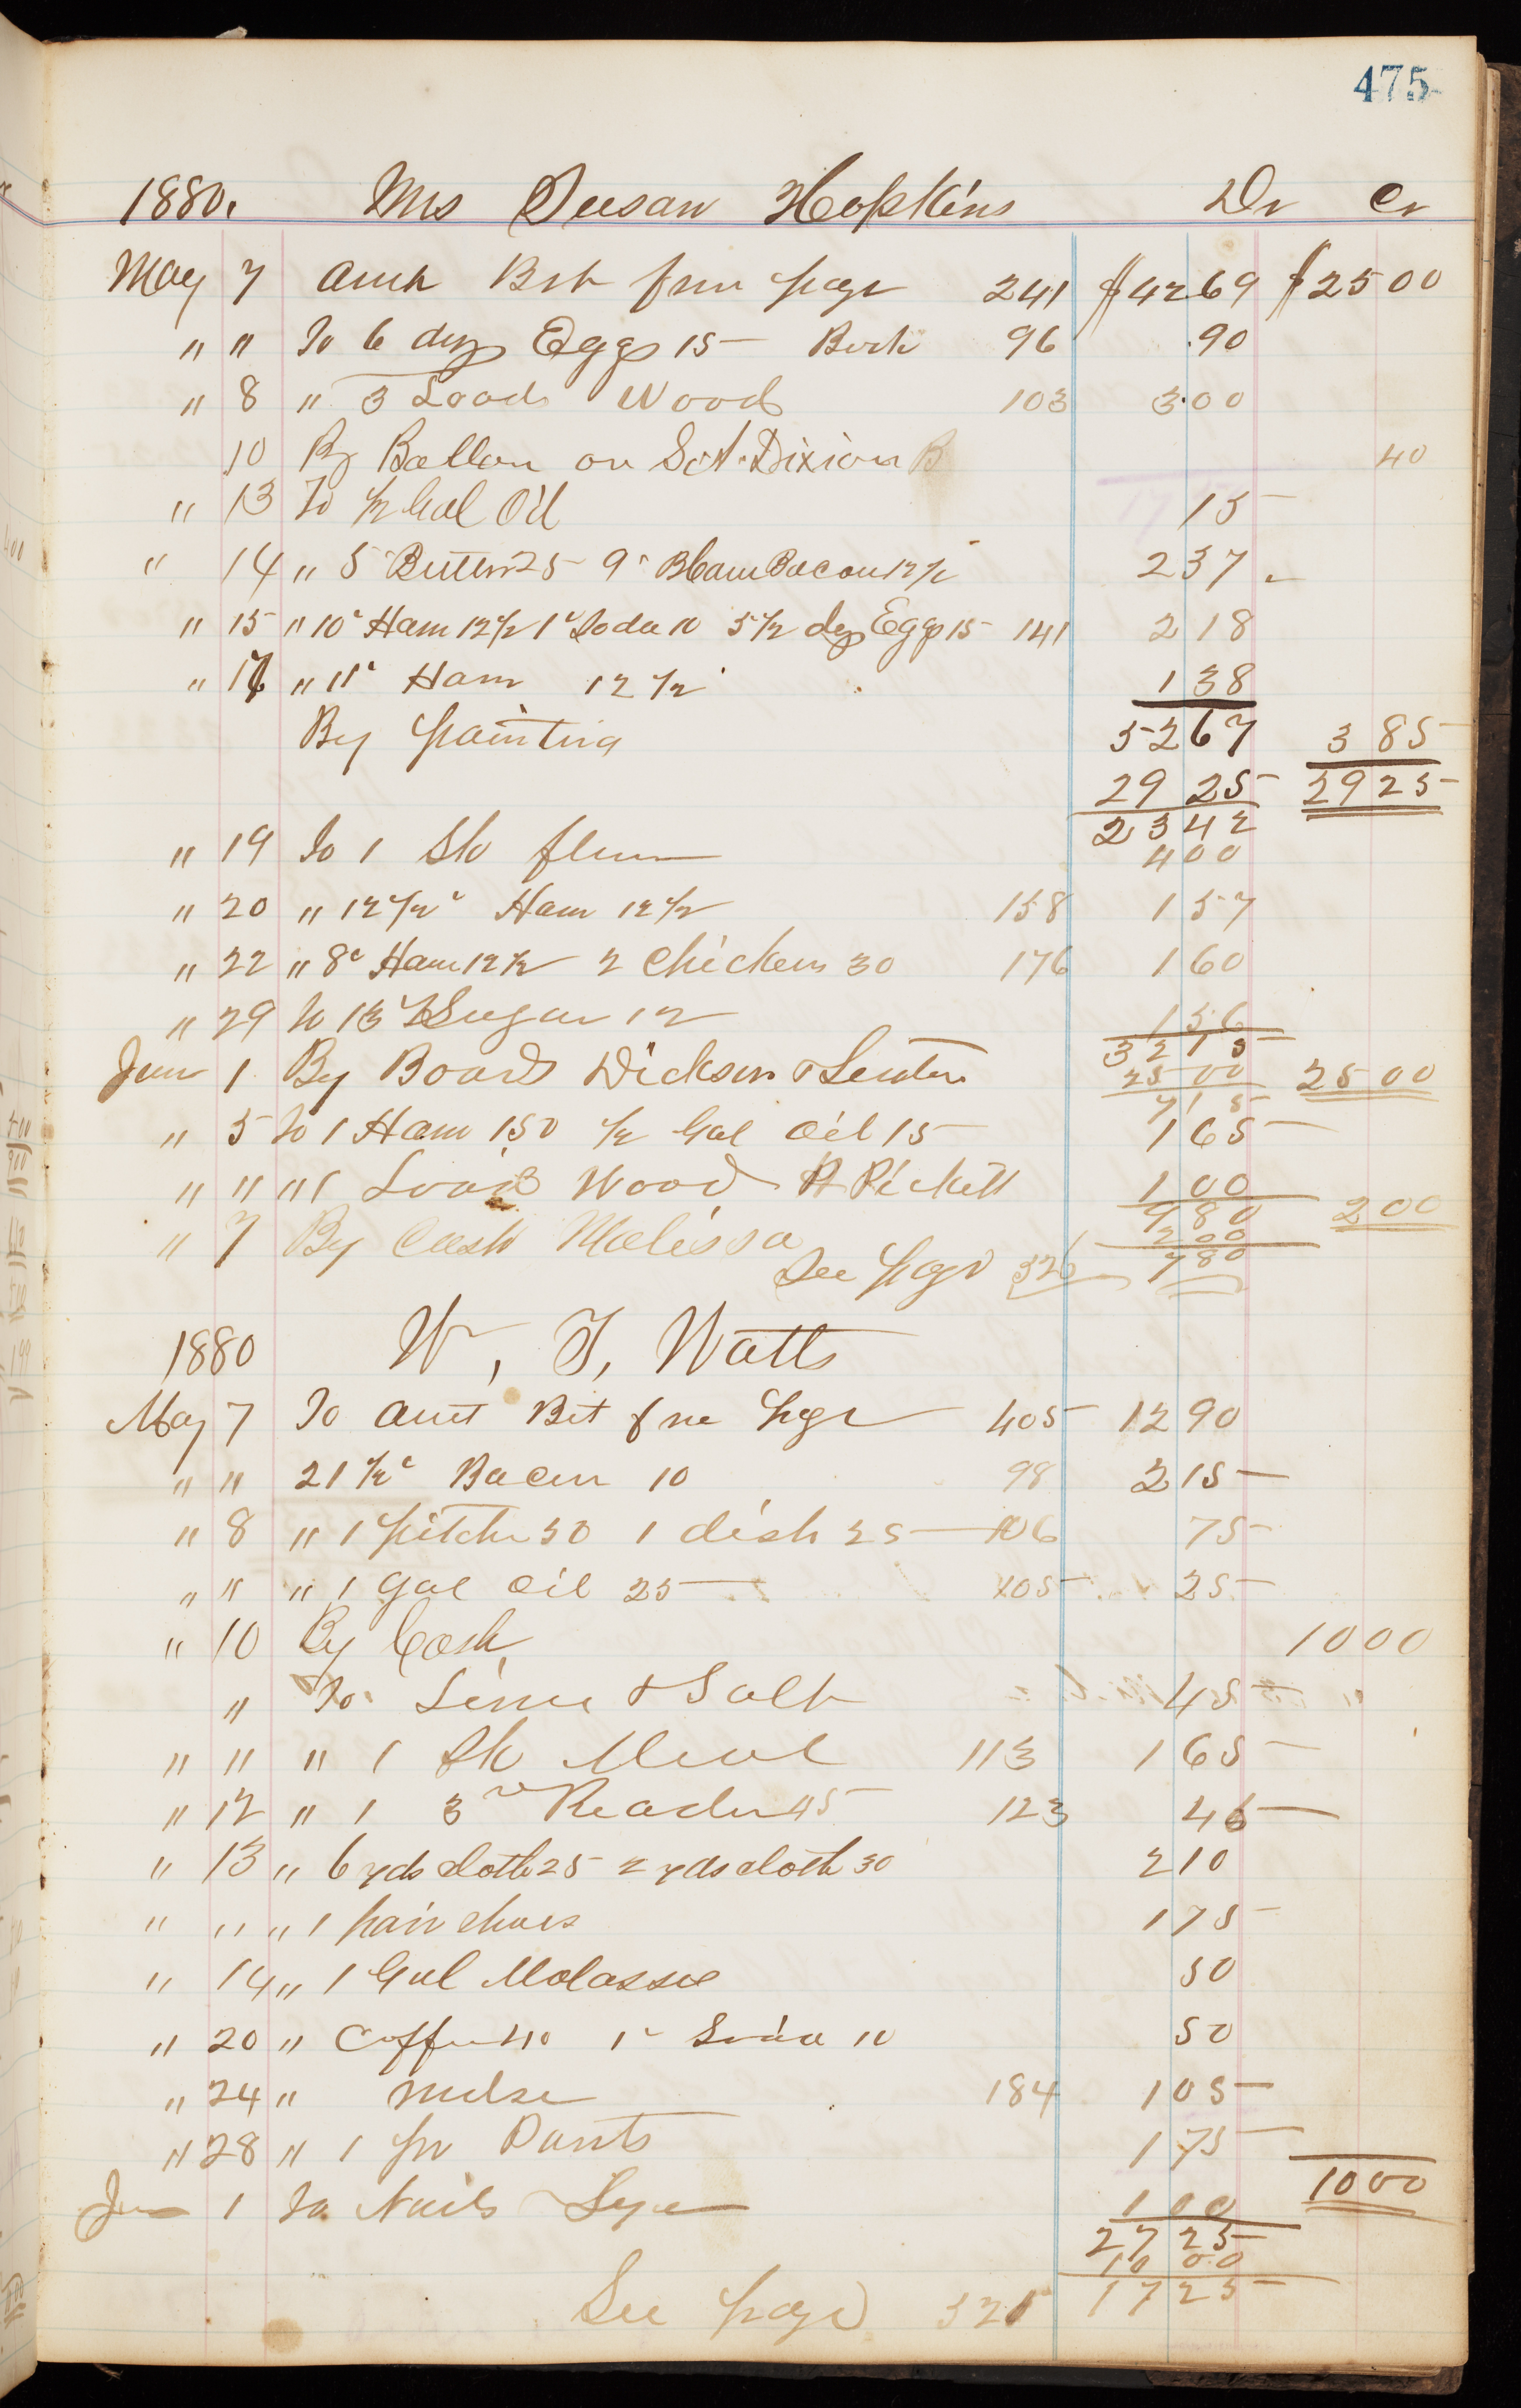 475
1880. Mrs Susan Hopkins Dr Cr
May 7 Amt Brt from page 241 $42 69 $25 00
" " To 6 doz Eggs 15 96 .90
" 8 " 3 Loads Wood 103 3.00
10 By Ballan on S.A. Dixion B 40
" 13 To 1/2 Gal Oil 15
" 14 " 5 Butter 25 9 " Bacon 12 1/2 2 37
" 15 " 10 " Ham 12 1/2 1 " Soda 10 5 1/2 doz Eggs 15 141 2 18
" 17 " 11 " Ham 12 1/2 1 38
By painting 52 67 3 85
29 25 29 25
23 42
" 19 To 1 Sk flour 4 00
" 20 " 12 1/2 " Ham 12 1/2 158 1 57
" 22 " 8 " Ham 12 1/2 2 Chickens 30 176 1 60
" 29 to 13 Sugar 12 1 56
32 15
June 1 By Board Dickson & 25 00 25 00
7 15
" 5 To 1 Ham 150 1/2 Gal Oil 15 1 65
" " " 1 Load Wood Pickett 1 00
9 80 2 00
" 7 By Cash Malissa 2 00
See page 326 7 80
1880 W. T. Watts
May 7 To Amt Brt fm page 405 12 90
" " 21 1/2 " Bacon 10 98 2 15
" 8 " 1 pitcher 50 1 dish 25 106 75
" " " 1 gal Oil 25 105 25
" 10 By Cash 10 00
" To Lime & Salt 45
" " " 1 Sk Meal 113 1 65
" 12 " 1 3rd Reader 45 123 45
" 13 " 6 yds cloth 25 2 yds cloth 30 2 10
" " " 1 pair shoes 1 75
" 14 " 1 Gal Molasses 50
" 20 " Coffee 40 1 " Soda 10 50
" 24 " mdse 184 1 05
" 28 " 1 pr Pants 1 75
10 00
June 1 To Nails Lye 1 00
27 25
10 00
See page 321 17 25